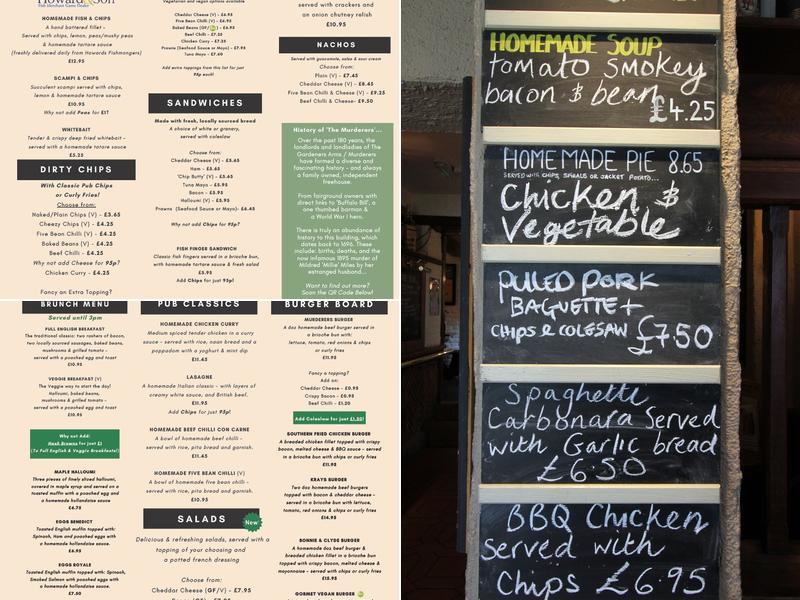 Howard & Son
HOMEMADE FISH & CHIPS
A hand battered fillet -
Served with chips, lemon, peas/mushy peas
& homemade tartare sauce
(freshly delivered daily from Howards Fishmongers)
£12.95
SCAMPI & CHIPS
Succulent scampi served with chips,
lemon & homemade tartare sauce
£10.95
Why not add Peas for £1?
WHITEBAIT
Tender & crispy deep fried whitebait -
served with a homemade tartare sauce
£5.25
DIRTY CHIPS
With Classic Pub Chips
or Curly Fries!
Choose from:
Naked/Plain Chips (V) - £3.65
Cheezy Chips (V) - £4.25
Five Bean Chilli (V) - £4.25
Baked Beans (V) - £4.25
Beef Chilli - £4.25
Why not add Cheese for 95p?
Chicken Curry - £4.25
Fancy an Extra Topping?
Vegetarian and vegan options available
Cheddar Cheese (V) - £6.95
Five Bean Chilli (V) - £6.95
Beef Chilli - £7.25
Chicken Curry - £7.25
Prawns (Seafood Sauce or Mayo) - £7.95
Tuna Mayo - £7.60
Add extra toppings from this list for just
95p each!
SANDWICHES
Made with fresh, locally sourced bread
A choice of white or granary,
served with coleslaw
Choose from:
Cheddar Cheese (V) - £5.65
Ham - £5.65
'Chip Butty' (V) - £5.65
Tuna Mayo - £5.95
Bacon - £5.95
Halloumi (V) - £5.95
Prawns (Seafood Sauce or Mayo) - £6.45
Why not add Chips for 95p?
FISH FINGER SANDWICH
Classic fish fingers served in a brioche bun,
with homemade tartare sauce & fresh salad
£5.95
Add Chips for just 95p!
served with crackers and
an onion chutney relish
£10.95
NACHOS
Served with guacamole, salsa & sour cream
Choose from:
Plain (V) - £7.45
Cheddar Cheese (V) - £8.45
Five Bean Chilli & Cheese (V) - £9.25
Beef Chilli & Cheese - £9.50
History of 'The Murderers'...
Over the past 180 years, the
landlords and landladies of The
Gardeners Arms / Murderers
have formed a diverse and
fascinating history - and always
a family owned, independent
freehouse.
From fairground owners with
direct links to 'Buffalo Bill', a
one thumbed barman &
a World War I hero.
There is truly an abundance of
history to this building, which
dates back to 1696. These
include: births, deaths, and the
now infamous 1895 murder of
Mildred 'Millie' Miles by her
estranged husband...
Want to find out more?
Scan the QR Code Below!
BRUNCH MENU
Served until 3pm
FULL ENGLISH BREAKFAST
The traditional classic: two rashers of bacon,
two locally sourced sausages, baked beans,
mushrooms & grilled tomato -
served with a poached egg and toast
£10.95
VEGGIE BREAKFAST (V)
The Veggie way to start the day!
Halloumi, baked beans,
mushrooms & grilled tomato -
served with a poached egg and toast
£10.95
Why not Add:
Hash Browns for just £1
(To Full English & Veggie Breakfasts!)
MAPLE HALLOUMI
Three pieces of finely sliced halloumi,
covered in maple syrup and served on a
toasted muffin with a poached egg and
a homemade hollandaise sauce
£6.75
EGGS BENEDICT
Toasted English muffin topped with:
Spinach, Ham and poached eggs with
a homemade hollandaise sauce.
£6.95
EGGS ROYALE
Toasted English muffin topped with: Spinach,
Smoked Salmon with poached eggs with
a homemade hollandaise sauce.
£7.50
PUB CLASSICS
HOMEMADE CHICKEN CURRY
Medium spiced tender chicken in a curry
sauce - served with rice, naan bread and a
poppadom with a yoghurt & mint dip
£11.45
LASAGNE
A homemade Italian classic - with layers of
creamy white sauce, and British beef.
£11.95
Add Chips for just 95p!
HOMEMADE BEEF CHILLI CON CARNE
A bowl of homemade beef chilli -
served with rice, pita bread and garnish.
£11.45
HOMEMADE FIVE BEAN CHILLI (V)
A bowl of homemade five bean chilli -
served with rice, pita bread and garnish.
£10.95
SALADS
New
Delicious & refreshing salads, served with a
topping of your choosing and
a potted french dressing
Choose from:
Cheddar Cheese (GF/V) - £7.95
BURGER BOARD
MURDERERS BURGER
A 6oz homemade beef burger served in
a brioche bun with:
lettuce, tomato, red onions & chips
or curly fries
£11.95
Fancy a topping?
Add on:
Cheddar Cheese - £0.95
Crispy Bacon - £0.95
Beef Chilli - £1.20
Add Coleslaw for just £1.50!
SOUTHERN FRIED CHICKEN BURGER
A breaded chicken fillet topped with crispy
bacon, melted cheese & BBQ sauce - served
in a brioche bun with chips or curly fries
£11.95
KRAYS BURGER
Two 6oz homemade beef burgers
topped with bacon & cheddar cheese -
served in a brioche bun with lettuce,
tomato, red onions & chips or curly fries
£14.95
BONNIE & CLYDE BURGER
A homemade 6oz beef burger &
breaded chicken fillet in a brioche bun
topped with crispy bacon, melted cheese &
mayonnaise - served with chips or curly fries
£15.95
GORMET VEGAN BURGER
HOMEMADE SOUP
tomato smokey
bacon & bean
£4.25
HOMEMADE PIE 8.65
SERVED WITH CHIPS, SPIRALS OR JACKET POTATO...
Chicken &
Vegetable
PULED PORK
BAGUETTE +
CHIPS & COLESAW £7.50
Spaghetti
Carbonara Served
with Garlic bread
£6.50
BBQ Chicken
Served with
Chips £6.95